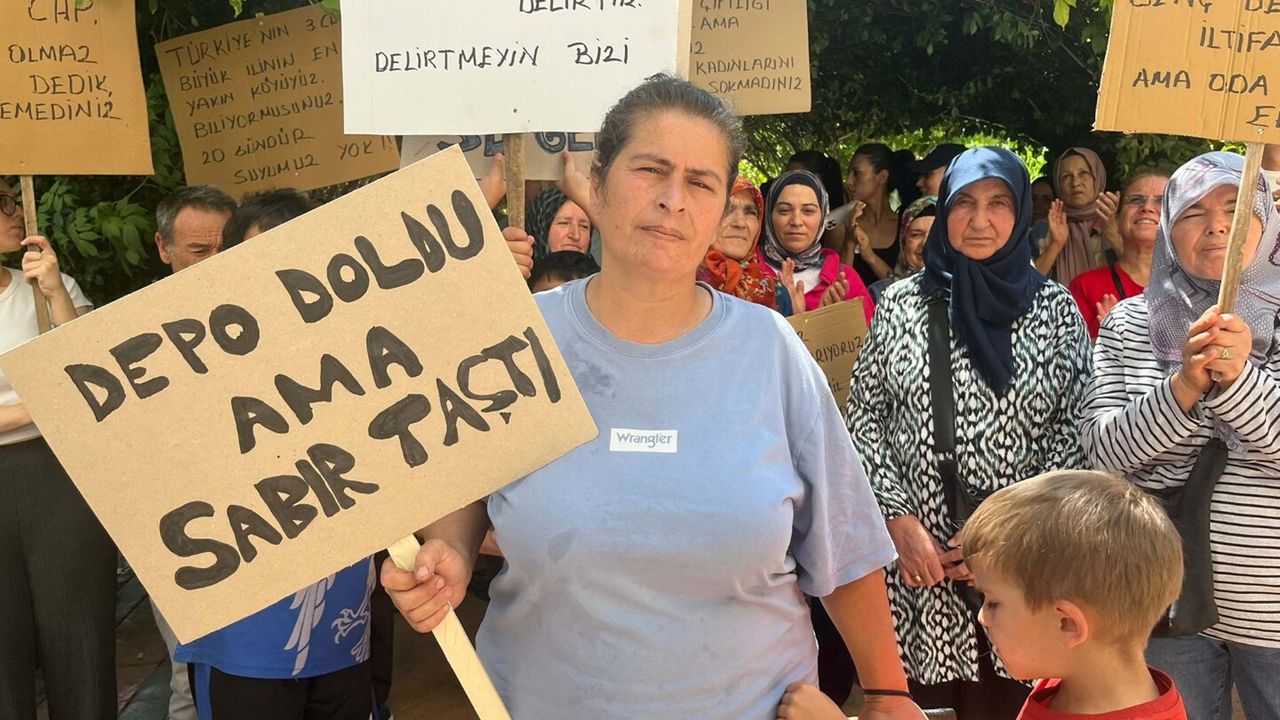 CHP
OLMAZ
DEDİK,
EMEDİNİZ
TÜRKİYE'NİN 3.
BÜYÜK İLİNİN EN
YAKIN KÖYÜYÜZ.
BİLİYORMUSUNUZ.
20 GÜNDÜR
SUYUMUZ YOK!
DELİRTİZ.
DELİRTMEYİN BİZİ
ÇİFTLİĞİ
AMA
KADINLARINI
SOKMADINIZ
İLTİFA
AMA ODA
DEPO DOLDU
AMA AMA
SABIR TAŞTI
Wrangler